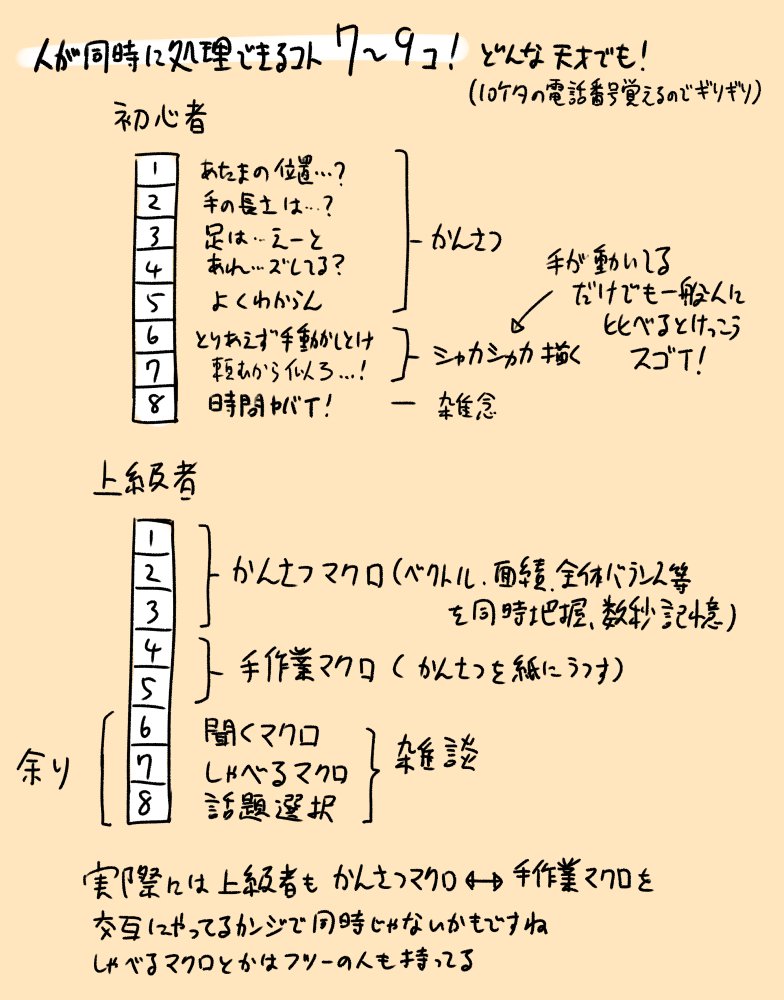 人が同時に処理できるコト 7〜9コ! どんな天才でも!
(10ケタの電話番号覚えるのでギリギリ)
初心者
1 あたまの位置…?
2 手の長さは…?
3 足は…えーと
4 あれ…ズレてる?
5 よくわからん
かんさつ
6 とりあえず手動かしとけ
7 頼むから似ろ…!
シャカシャカ描く
8 時間ヤバイ! ー 雑念
手が動いてる
だけでも一般人に
比べるとけっこう
スゴイ!
上級者
1
2
3
かんさつマクロ(ベクトル、面積、全体バランス等
を同時把握、数秒記憶)
4
5
手作業マクロ(かんさつを紙にうつす)
余り
6 聞くマクロ
7 しゃべるマクロ
8 話題選択
雑談
実際には上級者もかんさつマクロ↔手作業マクロを
交互にやってるカンジで同時じゃないかもですね
しゃべるマクロとかはフツーの人も持ってる